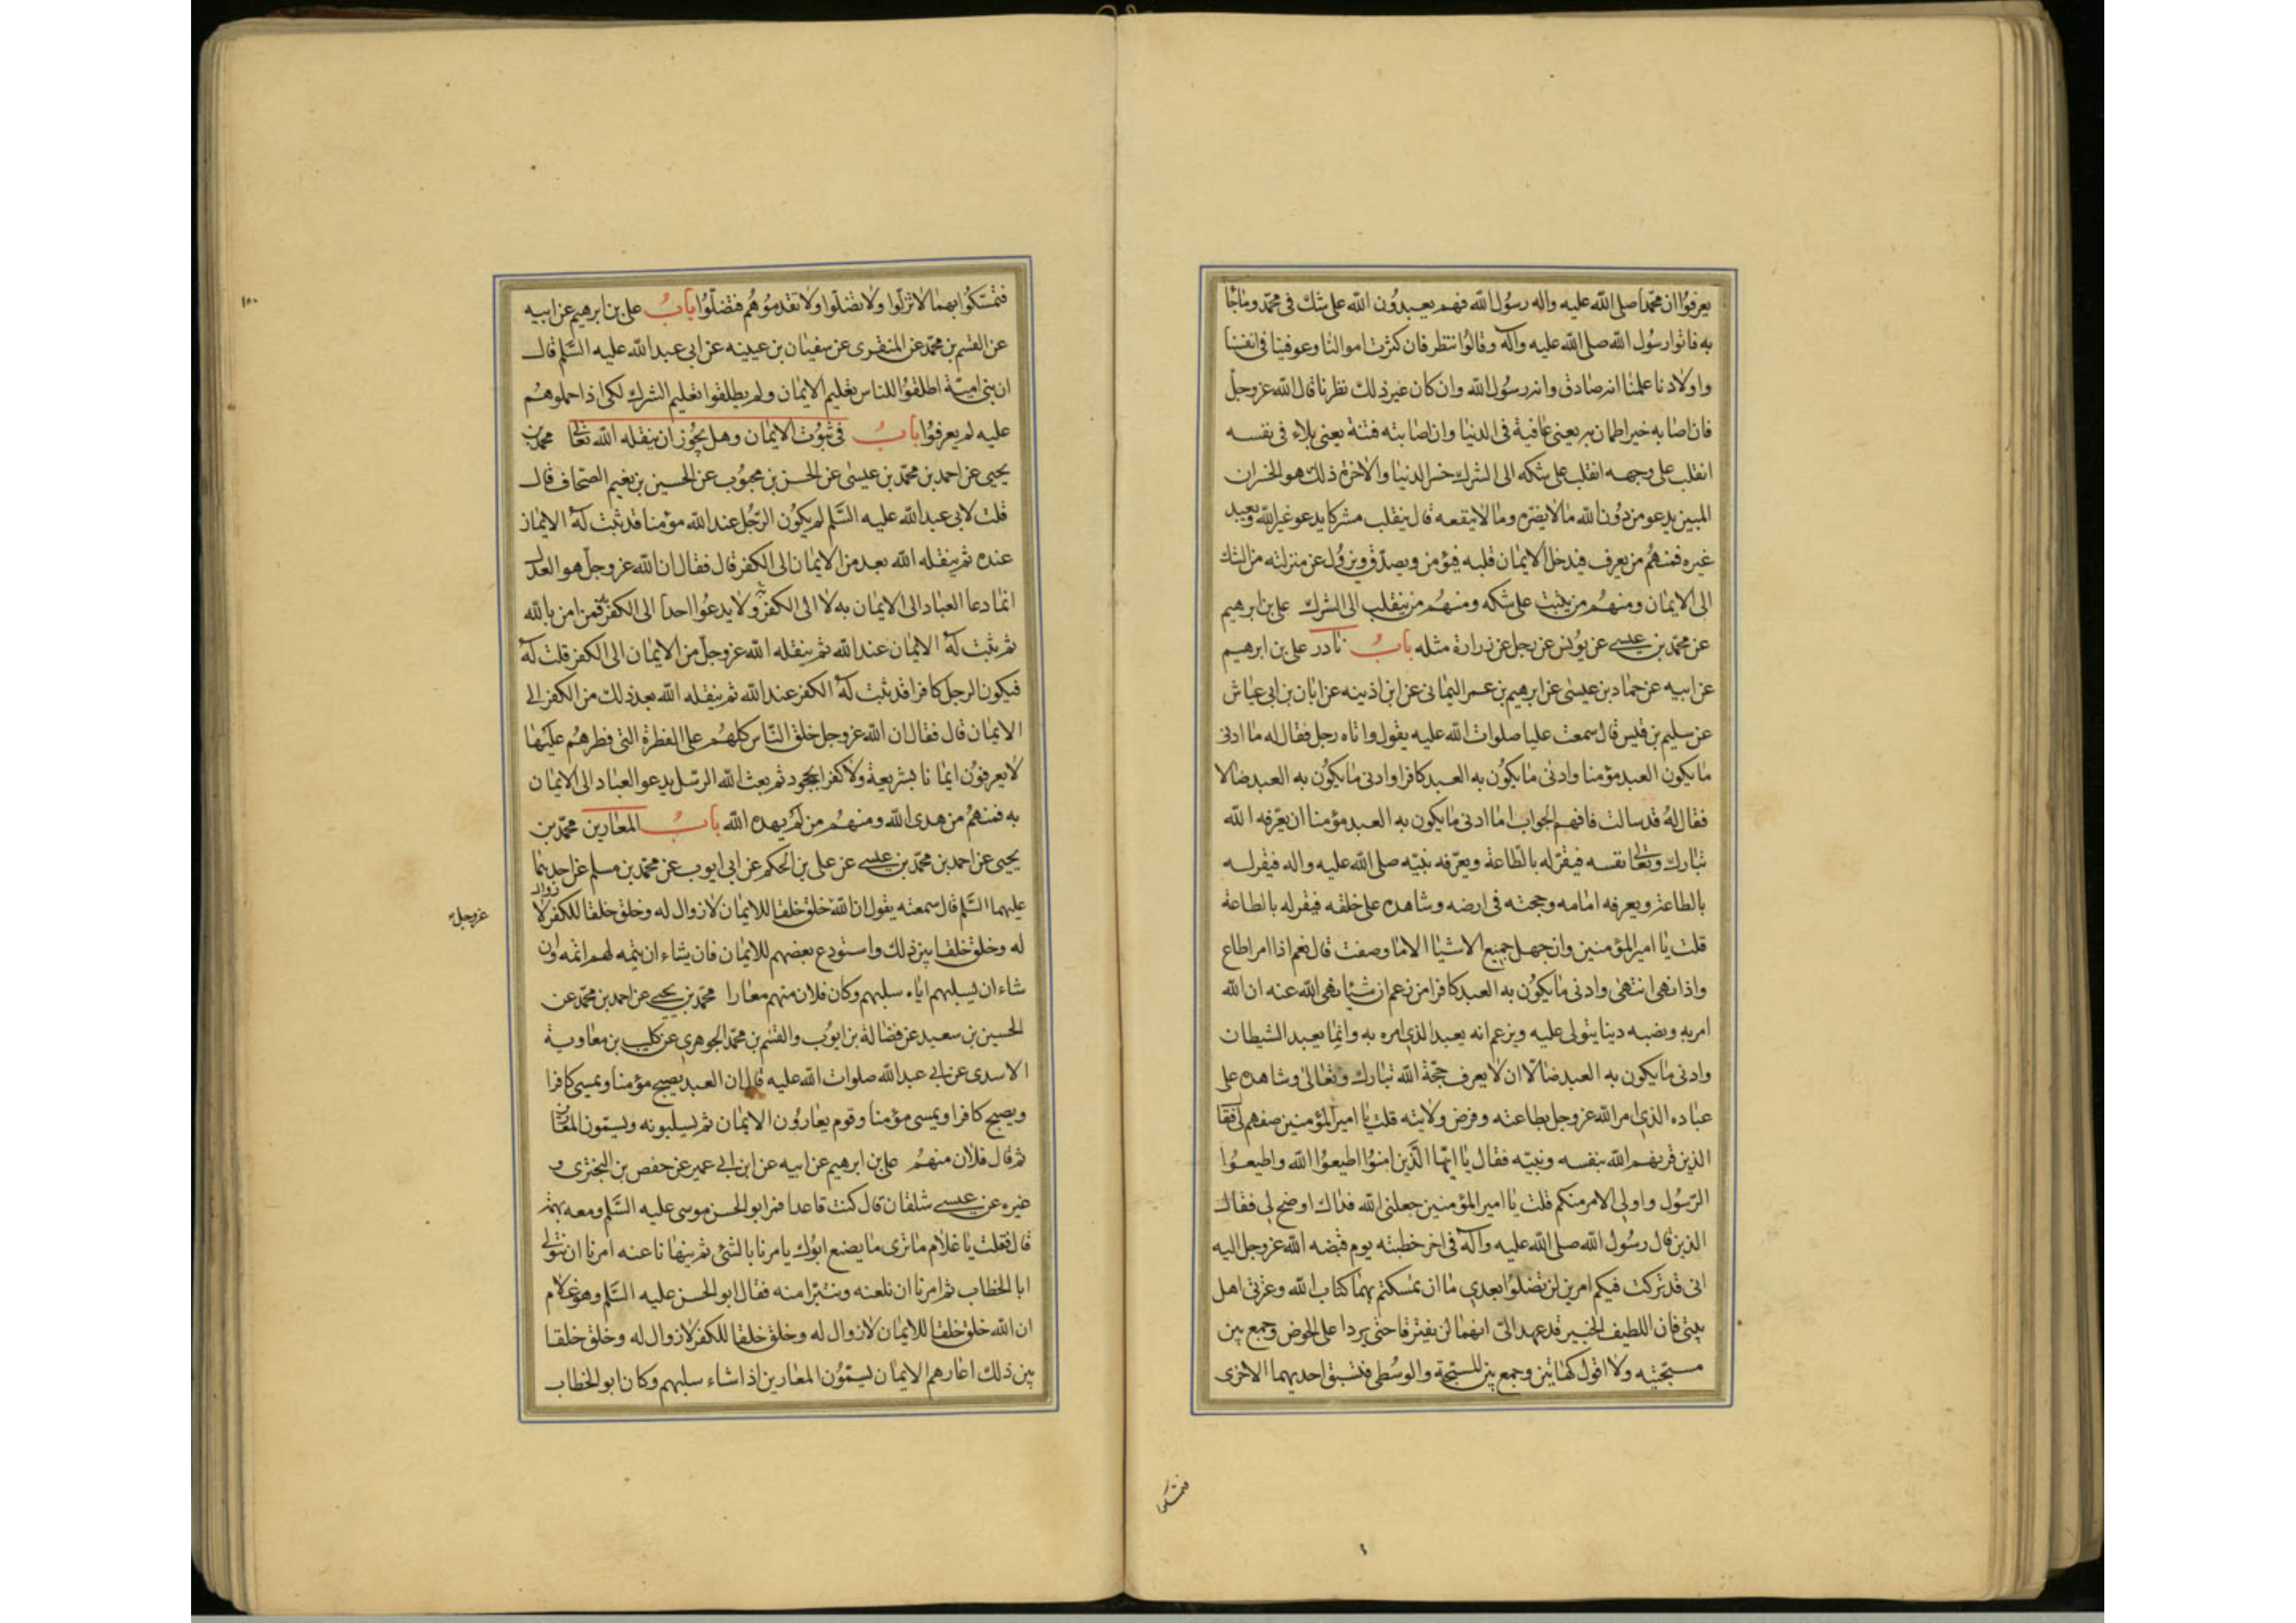 يعرفوا ان محمدا صلى الله عليه واله رسول الله فهم يعبدون الله على شك في محمد وما جا
به فاتوا رسول الله صلى الله عليه واله وقالوا ننتظر فان كثرت اموالنا وعوفينا في انفسنا
واولادنا علمنا انه صادق وانه رسول الله وان كان غير ذلك نظرنا قال الله عز وجل
فان اصابه خير اطمان به يعني عافية في الدنيا وان اصابته فتنة يعني بلاء في نفسه
انقلب على وجهه انقلب على شكه الى الشرك خسر الدنيا والاخرة ذلك هو الخسران
المبين يدعو من دون الله ما لا يضره وما لا ينفعه قال ينقلب مشركا يدعو غير الله ويعبد
غيره فمنهم من يعرف فيدخل الايمان قلبه فيؤمن ويصدق ويزول عن منزلته من الشك
الى الايمان ومنهم من يثبت على شكه ومنهم من ينقلب الى الشرك علي بن ابرهيم
عن محمد بن عيسى عن يونس عن رجل عن زرارة مثله باب نادر علي بن ابرهيم
عن ابيه عن حماد بن عيسى عن ابرهيم بن عمر اليماني عن ابن اذينه عن ابان بن ابي عياش
عن سليم بن قيس قال سمعت عليا صلوات الله عليه يقول واتاه رجل فقال له ما ادنى
ما يكون العبد مؤمنا وادنى ما يكون به العبد كافرا وادنى ما يكون به العبد ضالا
فقال له قد سالت فافهم الجواب اما ادنى ما يكون به العبد مؤمنا ان يعرفه الله
تبارك وتعالى نفسه فيقر له بالطاعة ويعرفه نبيه صلى الله عليه واله فيقر له
بالطاعة ويعرفه امامه وحجته في ارضه وشاهده على خلقه فيقر له بالطاعة
قلت يا امير المؤمنين وان جهل جميع الاشيا الا ما وصفت قال نعم اذا امر اطاع
واذا نهى انتهى وادنى ما يكون به العبد كافرا من زعم ان شيئا نهى الله عنه ان الله
امر به ونصبه دينا يتولى عليه ويزعم انه يعبد الذي امره به وانما يعبد الشيطان
وادنى ما يكون به العبد ضالا ان لا يعرف حجة الله تبارك وتعالى وشاهده على
عباده الذي امر الله عز وجل بطاعته وفرض ولايته قلت يا امير المؤمنين صفهم لي فقا
الذين قرنهم الله بنفسه ونبيه فقال يا ايها الذين امنوا اطيعوا الله واطيعوا
الرسول واولي الامر منكم قلت يا امير المؤمنين جعلني الله فداك اوضح لي فقال
الذين قال رسول الله صلى الله عليه واله في اخر خطبته يوم قبضه الله عز وجل اليه
اني قد تركت فيكم امرين لن تضلوا بعدي ما ان تمسكتم بهما كتاب الله وعترتي اهل
بيتي فان اللطيف الخبير قد عهد الي انهما لن يفترقا حتى يردا على الحوض وجمع بين
مسبحتيه ولا اقول كهاتين وجمع بين المسبحة والوسطى فتسبق احديهما الاخرى
فتمسكوا
١٥٠
فتمسكوا بهما لا تزلوا ولا تضلوا ولا تقدموهم فتضلوا باب علي بن ابرهيم عن ابيه
عن القسم بن محمد عن المنقري عن سفيان بن عيينه عن ابي عبد الله عليه السلم قال
ان بني امية اطلقوا للناس تعليم الايمان ولم يطلقوا تعليم الشرك لكي اذا حملوهم
عليه لم يعرفوا باب في ثبوت الايمان وهل يجوز ان ينقله الله تعالى محمد بن
يحيى عن احمد بن محمد بن عيسى عن الحسن بن محبوب عن الحسين بن نعيم الصحاف قال
قلت لابي عبد الله عليه السلم لم يكون الرجل عند الله مؤمنا قد ثبت له الايمان
عنده ثم ينقله الله بعد من الايمان الى الكفر قال فقال ان الله عز وجل هو العدل
انما دعا العباد الى الايمان به لا الى الكفر ولا يدعوا احدا الى الكفر فمن امن بالله
ثم ثبت له الايمان عند الله ثم ينقله الله عز وجل من الايمان الى الكفر قلت له
فيكون الرجل كافرا قد ثبت له الكفر عند الله ثم ينقله الله بعد ذلك من الكفر الى
الايمان قال فقال ان الله عز وجل خلق الناس كلهم على الفطرة التي فطرهم عليها
لا يعرفون ايمانا بشريعة ولا كفرا بجحود ثم بعث الله الرسل يدعو العباد الى الايمان
به فمنهم من هدى الله ومنهم من لم يهده الله باب المعارين محمد بن
يحيى عن احمد بن محمد بن عيسى عن علي بن الحكم عن ابي ايوب عن محمد بن مسلم عن احدهما
عليهما السلم قال سمعته يقول ان الله خلق خلقا للايمان لا زوال له وخلق خلقا للكفر لا زوال
عز وجل
له وخلق خلقا بين ذلك واستودع بعضهم للايمان فان يشاء ان يتمه لهم اتمه وان
شاء ان يسلبهم اياه سلبهم وكان فلان منهم معارا محمد بن يحيى عن احمد بن محمد عن
الحسين بن سعيد عن فضالة بن ايوب والقسم بن محمد الجوهري عن كليب بن معاوية
الاسدي عن ابي عبد الله صلوات الله عليه قال ان العبد يصبح مؤمنا ويمسي كافرا
ويصبح كافرا ويمسي مؤمنا وقوم يعارون الايمان ثم يسلبونه ويسمون المعارين
ثم قال فلان منهم علي بن ابرهيم عن ابيه عن ابن ابي عمير عن حفص بن البختري و
غيره عن عيسى شلقان قال كنت قاعدا فمر ابو الحسن موسى عليه السلم ومعه بهمة
قال فقلت يا غلام ما ترى ما يصنع ابوك يامرنا بالشئ ثم ينهانا عنه امرنا ان نتولى
ابا الخطاب ثم امرنا ان نلعنه ونتبرا منه فقال ابو الحسن عليه السلم وهو غلام
ان الله خلق خلقا للايمان لا زوال له وخلق خلقا للكفر لا زوال له وخلق خلقا
بين ذلك اعارهم الايمان يسمون المعارين اذا شاء سلبهم وكان ابو الخطاب